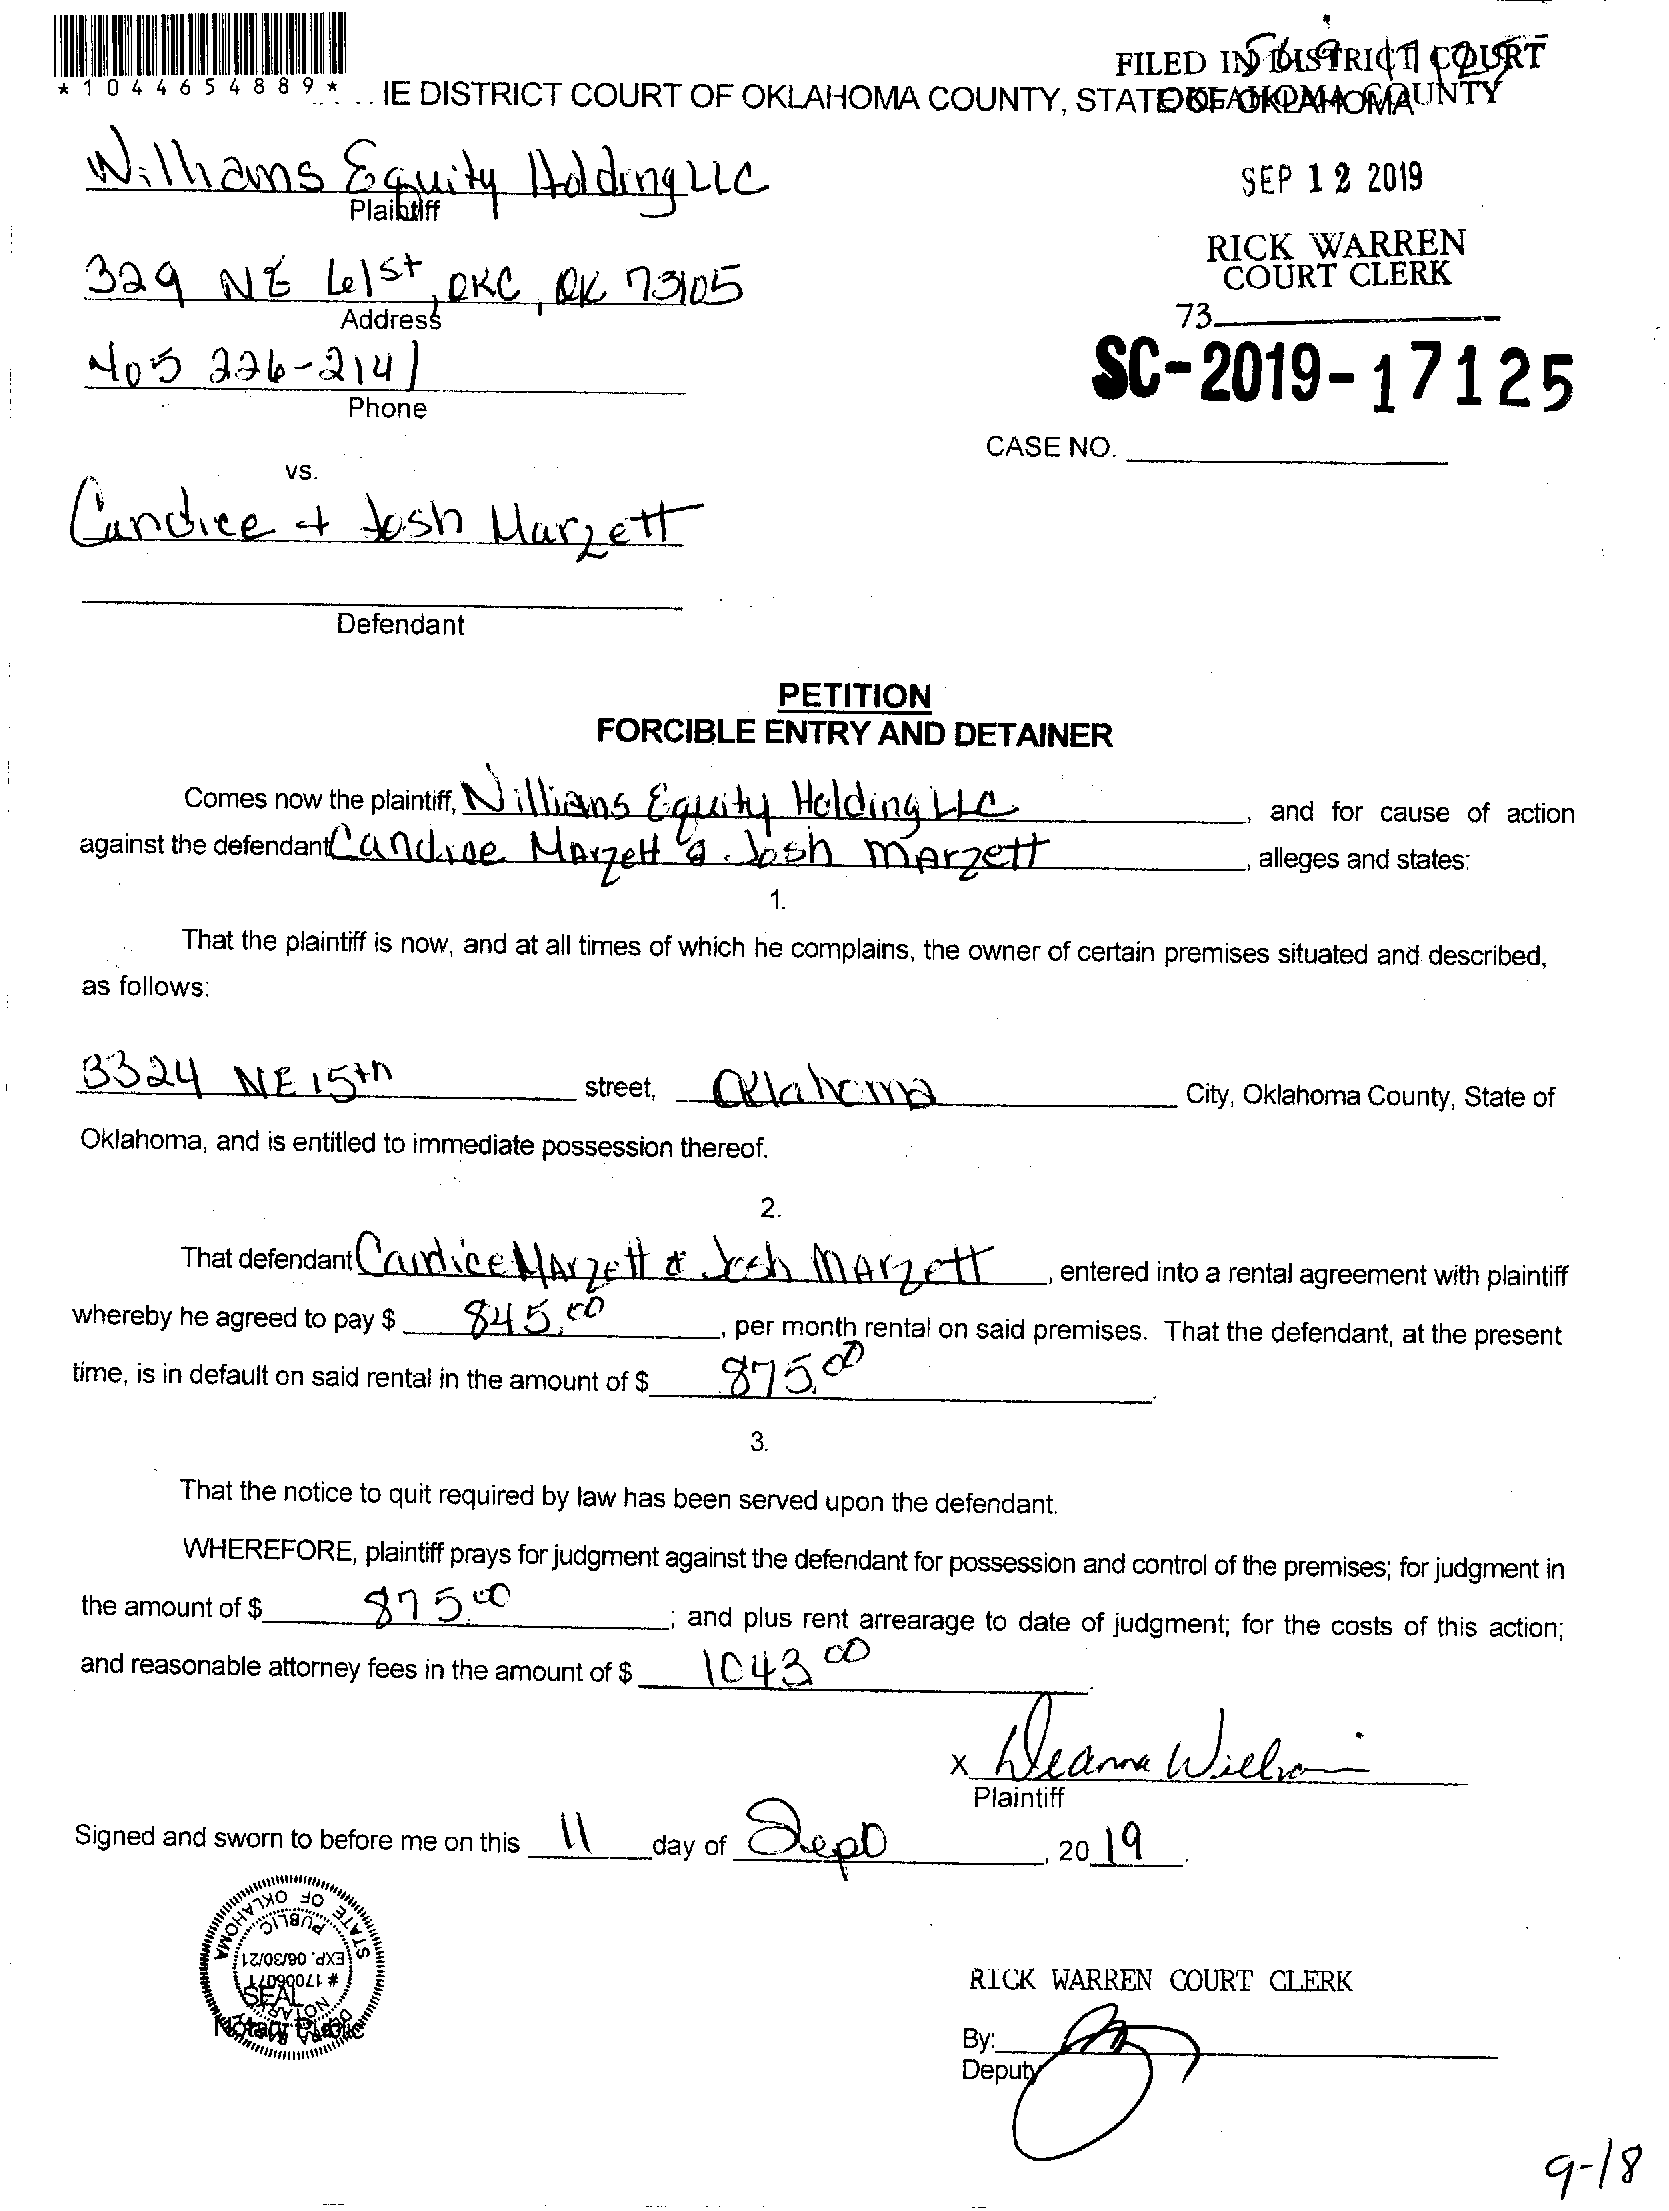 *1044654889*
FILED IN DISTRICT COURT
OKLAHOMA COUNTY
IE DISTRICT COURT OF OKLAHOMA COUNTY, STATE OF OKLAHOMA
Williams Equity Holding LLC
Plaintiff
SEP 12 2019
RICK WARREN
COURT CLERK
329 NE 61st, OKC, OK 73105
Address
73
405 226-2141
Phone
SC-2019-17125
CASE NO.
vs.
Candice + Josh Marzett
Defendant
PETITION
FORCIBLE ENTRY AND DETAINER
Comes now the plaintiff, Williams Equity Holding LLC, and for cause of action
against the defendant Candice Marzett & Josh Marzett, alleges and states:
1.
That the plaintiff is now, and at all times of which he complains, the owner of certain premises situated and described,
as follows:
3324 NE 15th street, Oklahoma City, Oklahoma County, State of
Oklahoma, and is entitled to immediate possession thereof.
2.
That defendant Candice Marzett & Josh Marzett, entered into a rental agreement with plaintiff
whereby he agreed to pay $ 845.00, per month rental on said premises. That the defendant, at the present
time, is in default on said rental in the amount of $ 875.00
3.
That the notice to quit required by law has been served upon the defendant.
WHEREFORE, plaintiff prays for judgment against the defendant for possession and control of the premises; for judgment in
the amount of $ 875.00; and plus rent arrearage to date of judgment; for the costs of this action;
and reasonable attorney fees in the amount of $ 1043 00.
x Deanna Williams
Plaintiff
Signed and sworn to before me on this 11 day of Sept, 2019.
STATE OF OKLAHOMA
PUBLIC
EXP. 06/30/21
# 17006071
NOTARY
SEAL
Notary Public
RICK WARREN COURT CLERK
By:
Deputy
9-18